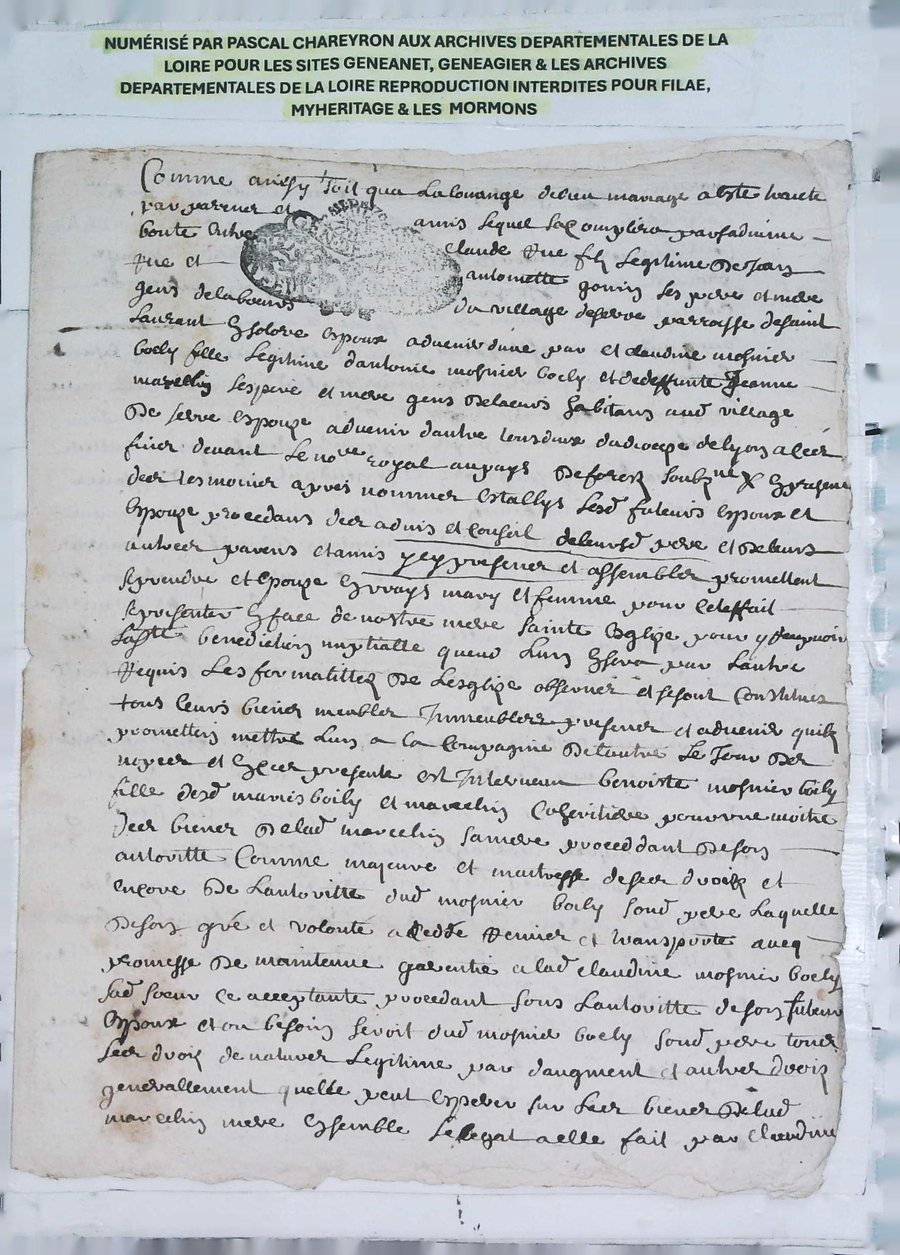 NUMÉRISÉ PAR PASCAL CHAREYRON AUX ARCHIVES DEPARTEMENTALES DE LA
LOIRE POUR LES SITES GENEANET, GENEAGIER & LES ARCHIVES
DEPARTEMENTALES DE LA LOIRE REPRODUCTION INTERDITES POUR FILAE,
MYHERITAGE & LES MORMONS
Comme ainsy soit qua La louange de dieu mariage a este traicte
par parens et amis lequel sacomplira par la divine
bonte entre Claude fils Legitime De Jean
et antoinette gonin ses pere et mere
gens de labeurs du village de serre parroisse de saint
Laurant espoux advenir dune par et claudine mosnier
boely fille Legitime dantoine mosnier boely et de deffunte Jeanne
marcellin ses pere et mere gens De labeurs habitans aud village
De serre espouze advenir dautre tous deux du dioceze de lyon
devant Le no.re royal au pays De forez soubz.né
apres nommer Lesd futeurs espoux et
espouze procedans de advis et Conseil de leursd pere et De leurs
autres parens et amis yey presener et assembler promettent
se prendre et espouze en vrays mary et femme pour cet effait
se presenter en face de nostre mere sainte Eglize pour y
benediction nuptialle quand Lun en sera par Lautre
requis Les formalittez De Lesglize observer et se sont Constitues
tous leurs biens meubler Immeubler presener et advenir quilz
promettent mettre Lun a la Compagnie De Lautre Le Jour De
nopces et presente est Intervenue benoiste mosnier boely
fille desd mariés boely et marcellin Coheritiere pour une moitie
des biener De lad marcellin sa mere proceddant De son
autoritte Comme majeure et maitresse de ses droitz et
encore De Lautoritte dud mosnier boely sond pere Laquelle
De son gré et volonte a cedde remier et transporte avecq
promesse De maintenue garentie a lad claudine mosnier boely
sad soeur ce acceptante procedant sous Lautoritte de son futeur
espoux et ou besoin seroit dud mosnier boely sond pere touer
ses droiz de nature Legitime par daugment et autres droiz
generallement quelle peut esperer sur les biener De lad
marcellin mere ensemble Le legat a elle fait par claudine